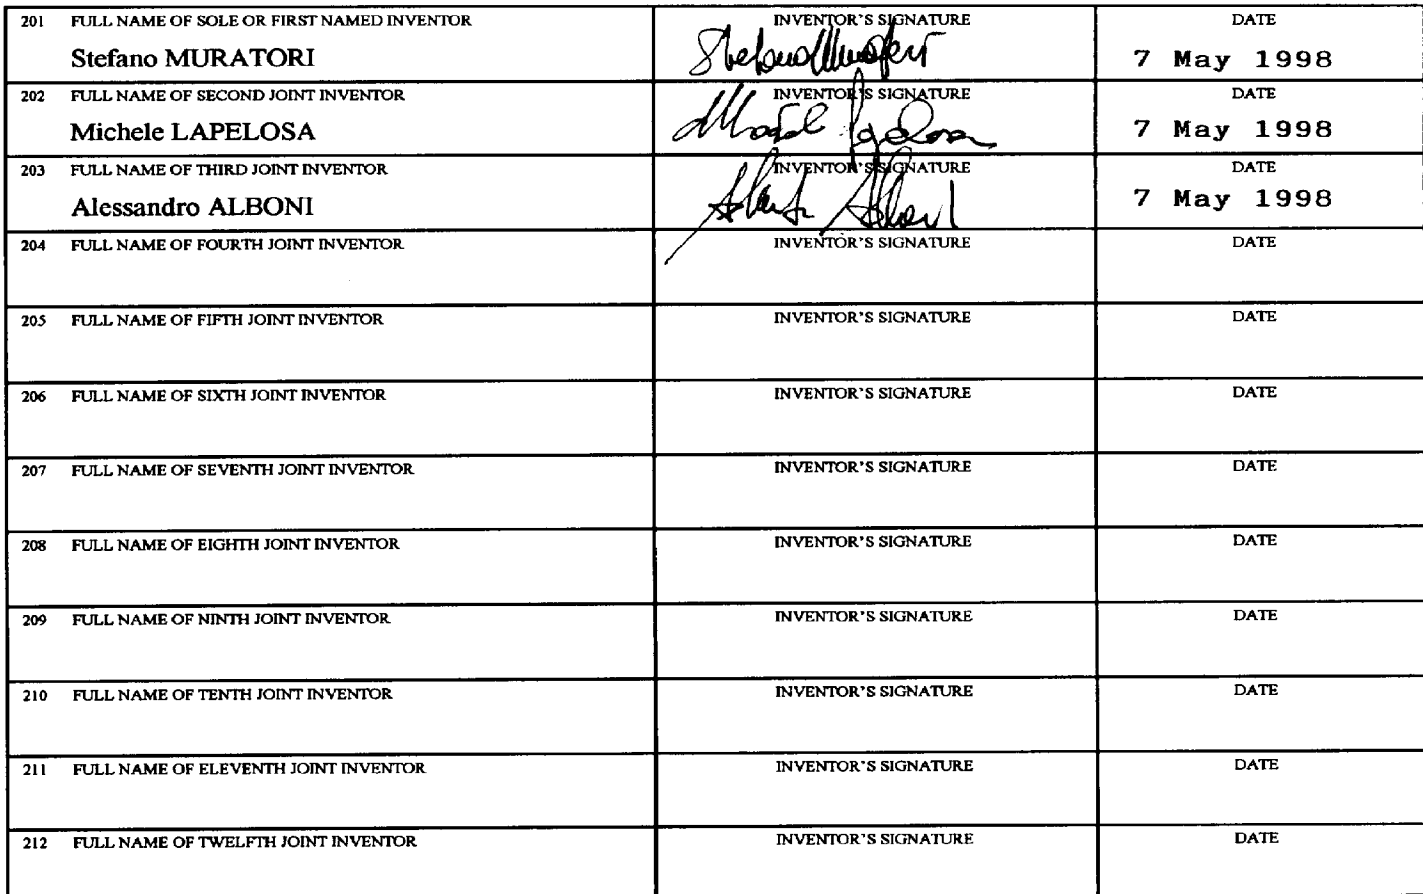 201 FULL NAME OF SOLE OR FIRST NAMED INVENTOR INVENTOR'S SIGNATURE DATE
Stefano MURATORI Stefano Muratori 7 May 1998
202 FULL NAME OF SECOND JOINT INVENTOR INVENTOR'S SIGNATURE DATE
Michele LAPELOSA 7 May 1998
203 FULL NAME OF THIRD JOINT INVENTOR INVENTOR'S SIGNATURE DATE
Alessandro ALBONI 7 May 1998
204 FULL NAME OF FOURTH JOINT INVENTOR INVENTOR'S SIGNATURE DATE
205 FULL NAME OF FIFTH JOINT INVENTOR INVENTOR'S SIGNATURE DATE
206 FULL NAME OF SIXTH JOINT INVENTOR INVENTOR'S SIGNATURE DATE
207 FULL NAME OF SEVENTH JOINT INVENTOR INVENTOR'S SIGNATURE DATE
208 FULL NAME OF EIGHTH JOINT INVENTOR INVENTOR'S SIGNATURE DATE
209 FULL NAME OF NINTH JOINT INVENTOR INVENTOR'S SIGNATURE DATE
210 FULL NAME OF TENTH JOINT INVENTOR INVENTOR'S SIGNATURE DATE
211 FULL NAME OF ELEVENTH JOINT INVENTOR INVENTOR'S SIGNATURE DATE
212 FULL NAME OF TWELFTH JOINT INVENTOR INVENTOR'S SIGNATURE DATE